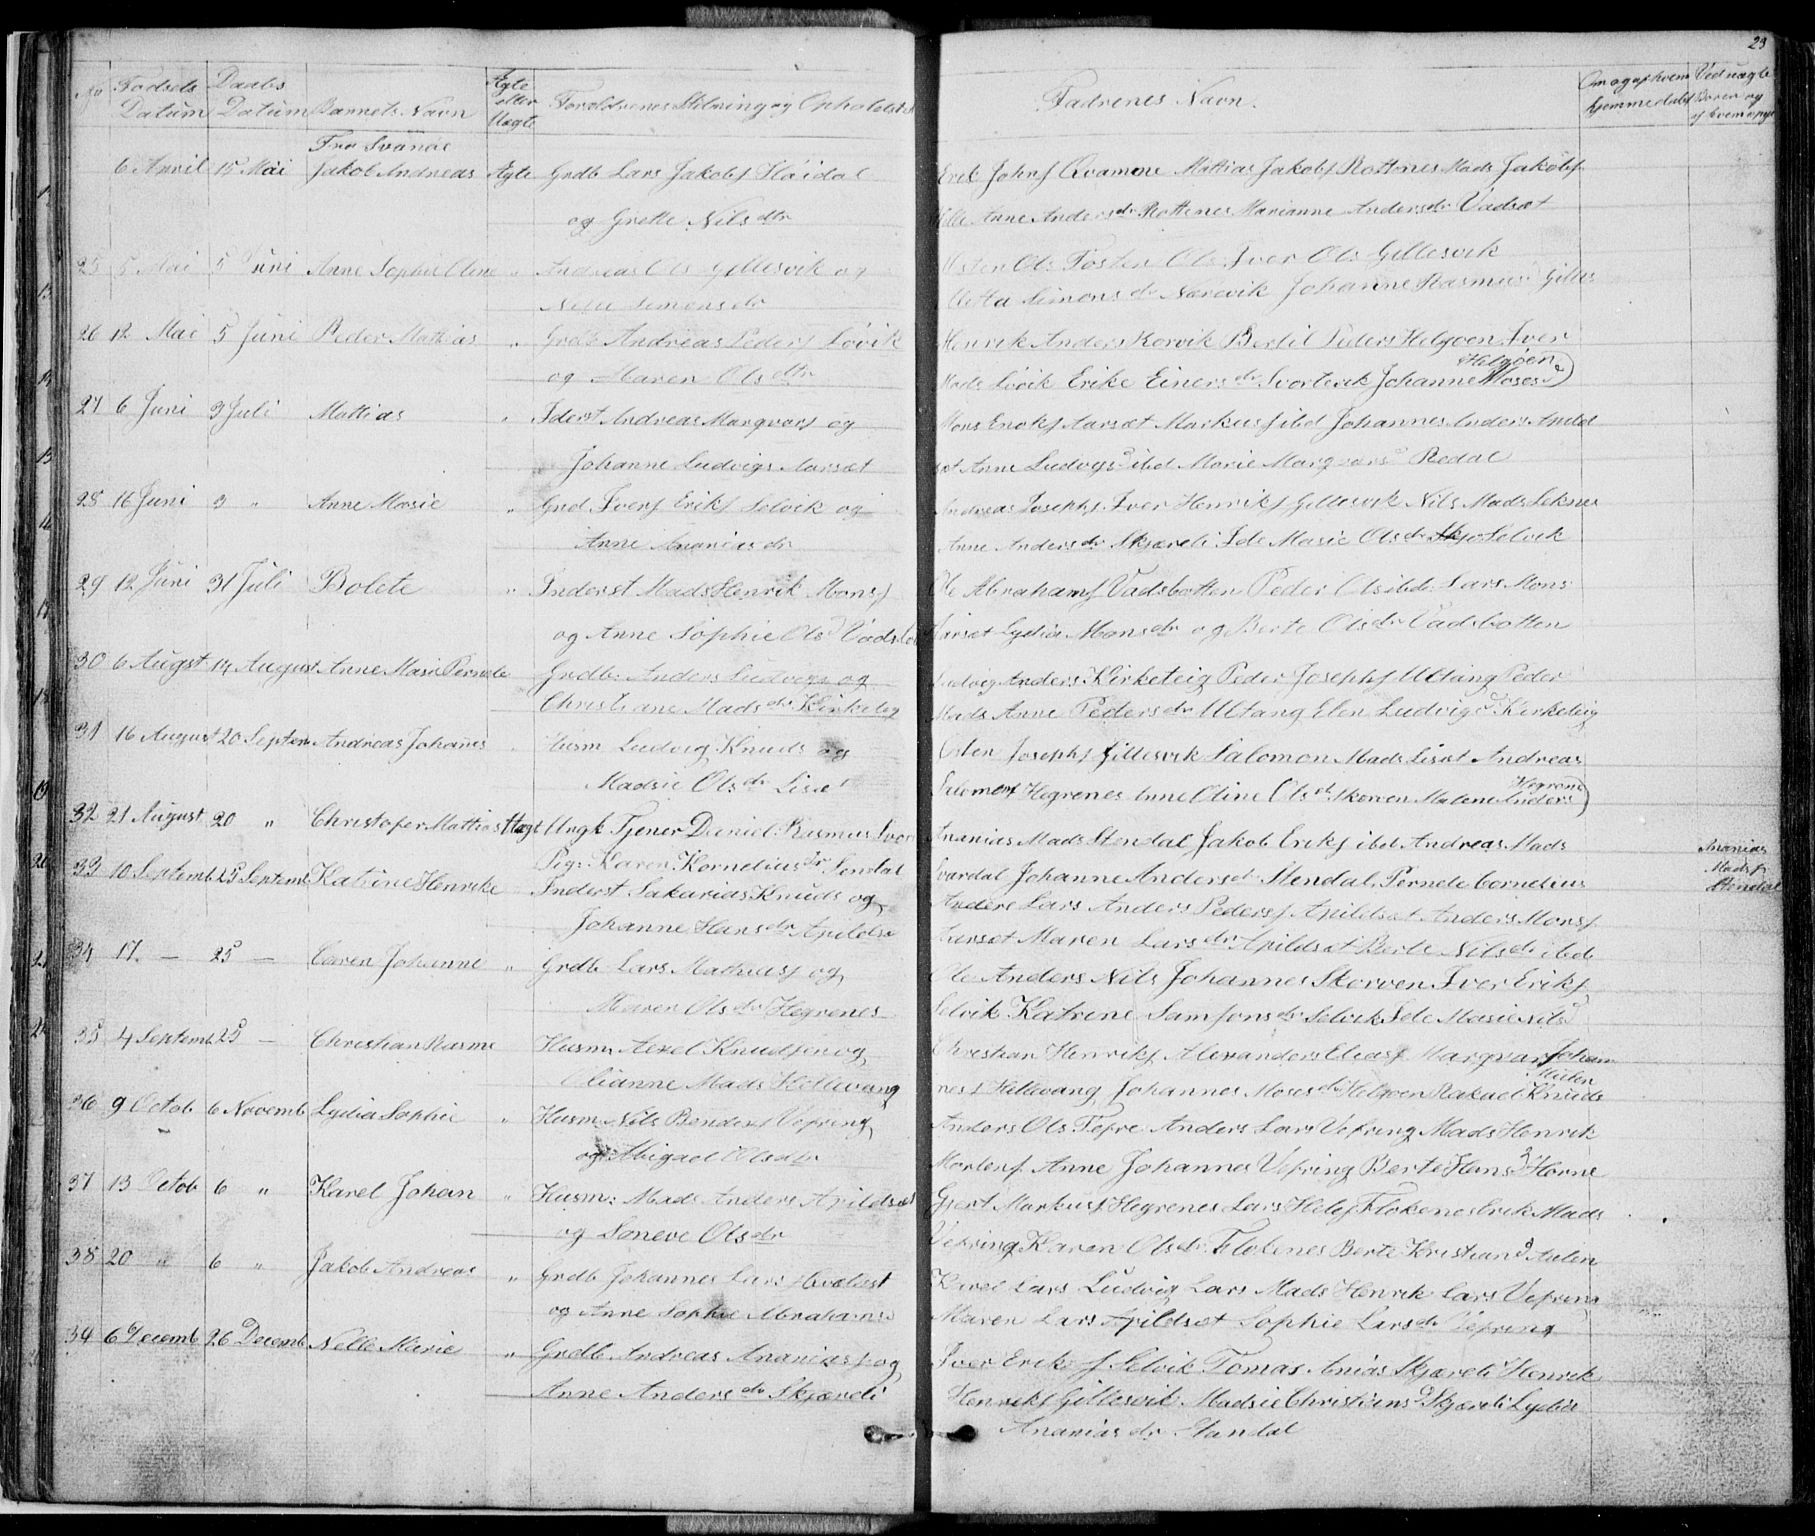 23
No Fødsels Datum Daabs Datum Barnets Navn Ægte eller Uægte Forældrenes Stilning og Opholdsted
Fadrenes Navn.
Om og af hvem hjemmedøbt
Ved uægte Børn og af hvem opgivet
Fra Svanøe
6 April 15 Mai Jakob Andreas Ægte Grdb Lars Jakobs Høidal
og Grette Nils dtr
Erik Johns Qvamme Mattias Jakobs Rottenes Mads Jakobs
Anne Anders dr Rottenes Marianne Anders dr Vadsæt
25 5 Mai 5 Juni Anne Sophie Oline " Andreas Ols Gillesvik og
Simons dr
Østen Ols Tosten Ols Iver Ols Gillesvik
Simons dr Nærevik Johanne Rasmus Gilles
26 12 Mai 5 Juni Peder Mattias " Grdb Andreas Peders Løvik
og Maren Ols dtr
Henrik Anders Korvik Bertil Peders Helgøen Iver
Helgøen
Mads Løvik Erike Einers dr Svortevik Johanne Moses d
27 6 Juni 3 Juli Mattias " Iderst Andreas Marqvars og
Johanne Ludvigs Aarsæt
Mons Enoks Aarsæt Markus ibd Johannes Anders Apild
sæt Anne Ludvigs d ibd Marie Marqvars d Redal
28 16 Juni 3 " Anne Marie " Grd Ivers Eriks Selvik og
Anne Ananias dr
Andreas Josephs Iver Henriks Gillesvik Nils Mads Leknes
Anne Anders dr Skjæreli Ide Marie Ols dr Selvik
29 12 Juni 31 Juli Bolete " Inderst Mads Henrik Mons
og Anne Sophie Ols d Vadsbo
Ole Abrahams Vadsbotten Peder Ols ibd. Lars Mons
Aarset Lydia Mons dr og Berte Ols dr Vadsbotten
30 6 Augst 14 August Anne Marie Pernele Grdb: Anders Ludvigs og
Christiane Mads dr Kirketeig
Ludvig Anders Kirketeig Peder Josephs Ultang Peder
Mads Anne Peders dr Ultang Elen Ludvigs d Kirketeig
31 16 August 20 Septem Andreas Johanes " Husm Ludvig Knuds og
Madsie Ols dr Lisæt
Østen Josephs Gillesvik Salomon Mads Lisæt Andreas
Hegrenes
Salomons Hegrenes Anne Oline Ols dr Skorven Malene Anders
32 21 August 20 " Christofer Mattias Uægt Ungk Tjener Daniel Rasmus
Pig: Karen Kornelius dr Sendal
Ananias Mads Stendal Jakob Eriks ibd Andreas Mads
Svardal Johanne Anders d Stendal, Pernele Cornelius
Ananias
Mads
Stendal
33 10 Septemb 25 Septemb Katrine Henrike Inderst Sakarias Knuds og
Johanne Hans dr Apilds
Andere Lars Anders Peders Apildsæt Anders Mons
Aarsæt Maren Lars dr Apildsæt Berte Nils dr ibd
34 17. — 25 — Caren Johanne " Grdb Lars Mathias og
Maren Ols dr Hegrenes
Ole Anders Nils Johannes Skorven Iver Eriks
Selvik Katrine Samsons dr Selvik Ide Marie Nils d
35 4 Septemb 25 — Christian Rasmu Husm. Axel Knudsen og
Olianne Mads Hellevang
Christian Henriks Alexanders Elias Marqvar Johan
nes Hellevang Johannes Moses dr Helgøen Rakael Knuds
36 9 Octob 6 Novemb Lydia Sophie " Husm. Nils Benders Vefring
og Abigael Ols dr
Anders Ols Tefre Anders Lars Vefring Mads Henrik
Mortens Anne Johannes Vefring Berte Hans d Horne
37 13 Octob 6 " Karel Johan " Husm: Mads Anders Apildsæt
og Søneve Ols dr
Gjert Markus Hegrenes Lars Hels Flokenes Erik Mads
Vefring Karen Ols dr Flokenes Berte Kristians d
38 20 " 6 " Jakob Andreas " Grdb Johannes Lars
og Anne Sophie Abrahams
Karel Lars Ludvig Lars Mads Henrik Lars Vefring
Maren Lars Apildsæt Sophie Lars dr Vefring
39 6 Decemb 26 Decemb Nelle Marie " Grdb Andreas Ananias og
Anne Anders dr Skjæreli
Iver Eriks Selvik Tomas Anias Skjæreli Henrik
Henriks Gillesvik Madsie Christians d Skjæreli Lydia
Ananias dr Standal